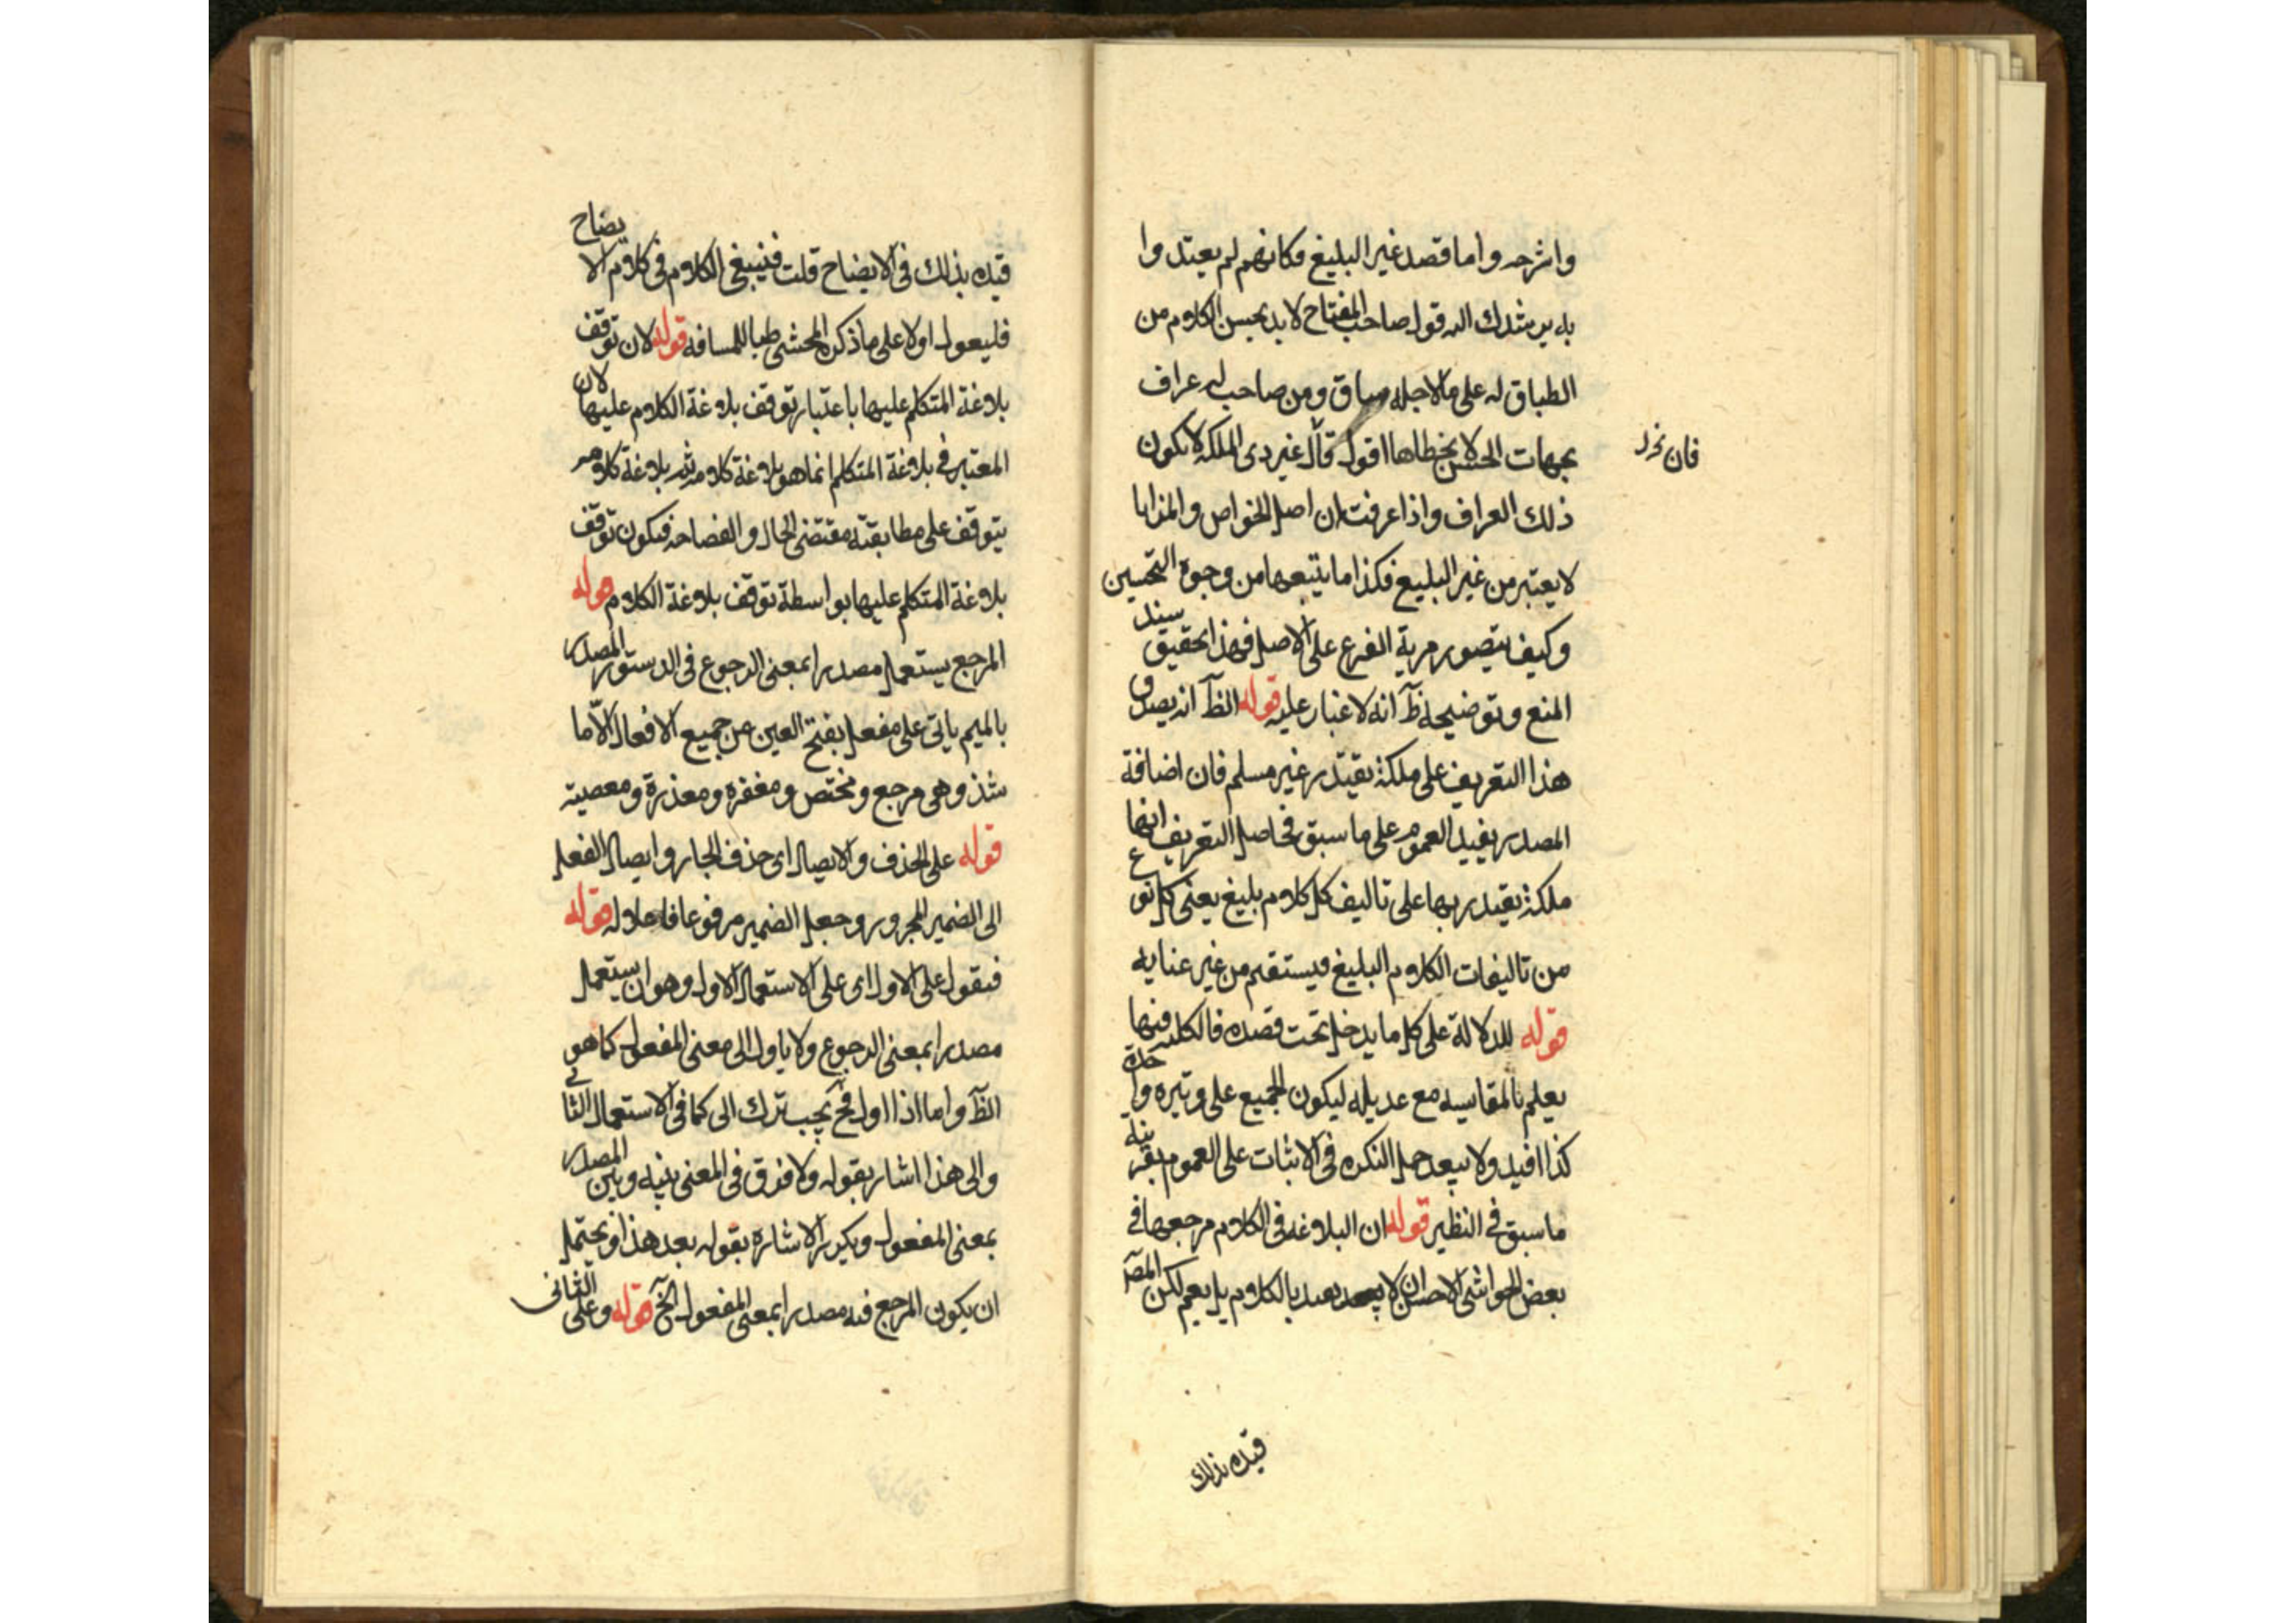 واشرحه واما قصد غير البليغ فكانهم لم يعتدوا
به يرشدك اليه قول صاحب المفتاح لا بد بحسن الكلام من
الطباق له على ما لاجله مساق ومن صاحب له عراف
بجهات الحسن لا يخطاها اقول قال غير ذى الملكة لا يكون
فان نحرل
ذلك العراف واذا عرفت ان اصل الخواص والمزايا
لا يعتبر من غير البليغ فكذا ما يتبعها من وجوه التحسين
وكيف يتصور مرية الفرع على الاصل فهذا تحقيق سند
المنع وتوضيحه ظ انه لا غبار عليه قوله الظ انه يصدق
هذا التعريف على ملكة يقتدر غير مسلم فان اضافة
المصدر يفيد العموم على ما سبق فحاصل التعريف انها
ملكة يقتدر بها على تاليف كل كلام بليغ يعنى كل نوع
من تاليفات الكلام البليغ فيستقيم من غير عنايه
قوله للدلالة على كل ما يدخل تحت قصده فالكلية فيها
يعلم بالمقايسه مع عديله ليكون الجميع على وتيره واحدة
كذا افيد ولا يبعد حمل النكره فى الاثبات على العموم بقرينة
ما سبق فى النظير قوله ان البلاغه فى الكلام مرجعها فى
بعض الحواشى الاحسن ان لا يقيد بالكلام بل يعم لكن المص
قيده بذلك
قيده بذلك فى الايضاح قلت فينبغى الكلام فى كلام الايضاح
فليعول اولا على ما ذكره المحشى طيا للمسافه قوله لان توقف
بلاغة المتكلم عليها باعتبار توقف بلاغة الكلام عليها لان
المعتبر فى بلاغة المتكلم انما هو بلاغة كلامه ثم بلاغة كلامه
يتوقف على مطابقته مقتضى الحال والفصاحه فيكون توقف
بلاغة المتكلم عليها بواسطة توقف بلاغة الكلام قوله
المرجع يستعمل مصدرا بمعنى الرجوع فى الدستور المصدر
بالميم ياتى على مفعل بفتح العين من جميع الافعال الا ما
شذ وهى مرجع و مختص و مغفره و معذرة و معصيته
قوله على الحذف والايصال اى حذف الجار وايصال الفعل
الى الضمير المجرور وجعل الضمير مرفوعا فاعلا له قوله
فيقول على الاول اى على الاستعمال الاول وهو ان يستعمل
مصدرا بمعنى الرجوع ولا ياول الى معنى المفعول كما هو
الظ واما اذا اول فح يجب ترك الى كما فى الاستعمال الثانى
والى هذا اشار بقوله ولا فرق فى المعنى بينه وبين المصدر
بمعنى المفعول ويكرر الاشارة بقوله بعد هذا ويحتمل
ان يكون المرجع فيه مصدرا بمعنى المفعول الخ قوله وعلى الثانى